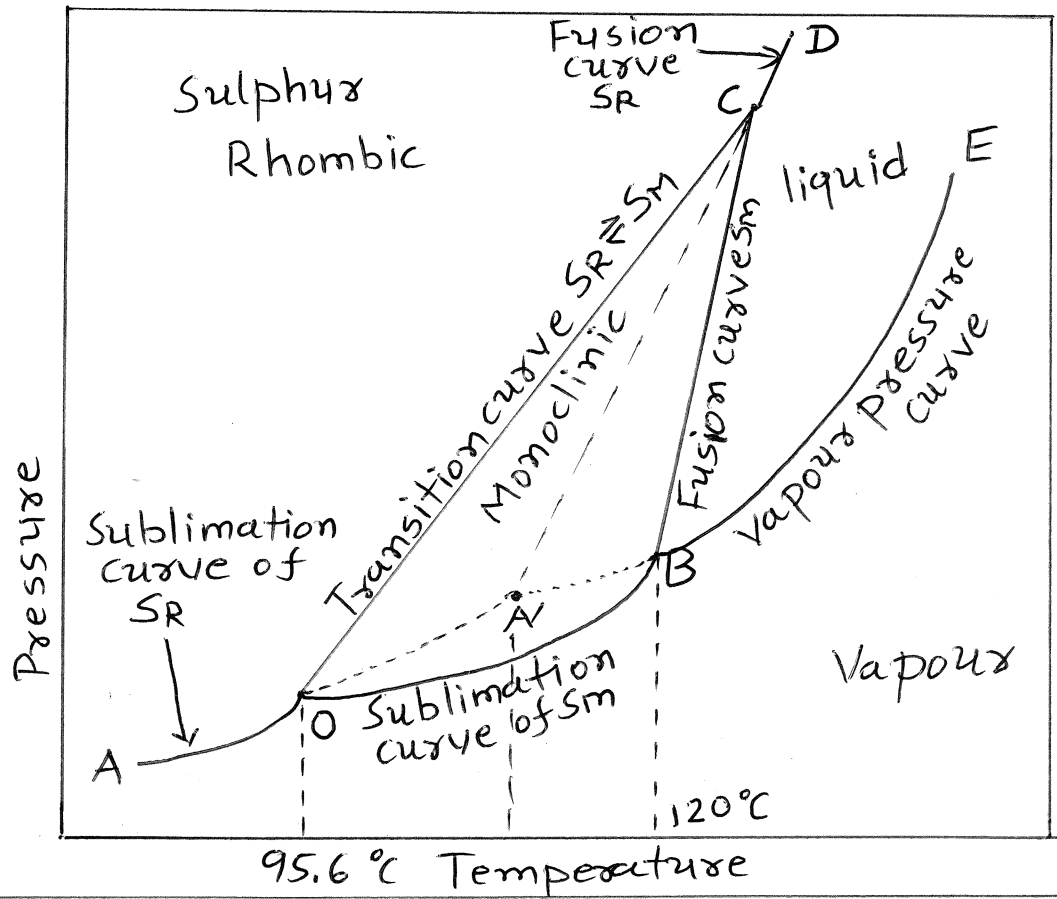 Fusion
curve
SR
D
C
Sulphur
Rhombic
E
liquid
Transition curve SR ⇌ SM
Monoclinic
Fusion curve SM
Vapour Pressure
curve
Pressure
Sublimation
curve of
SR
B
A'
Vapour
O
Sublimation
curve of Sm
A
120°C
95.6 °C Temperature